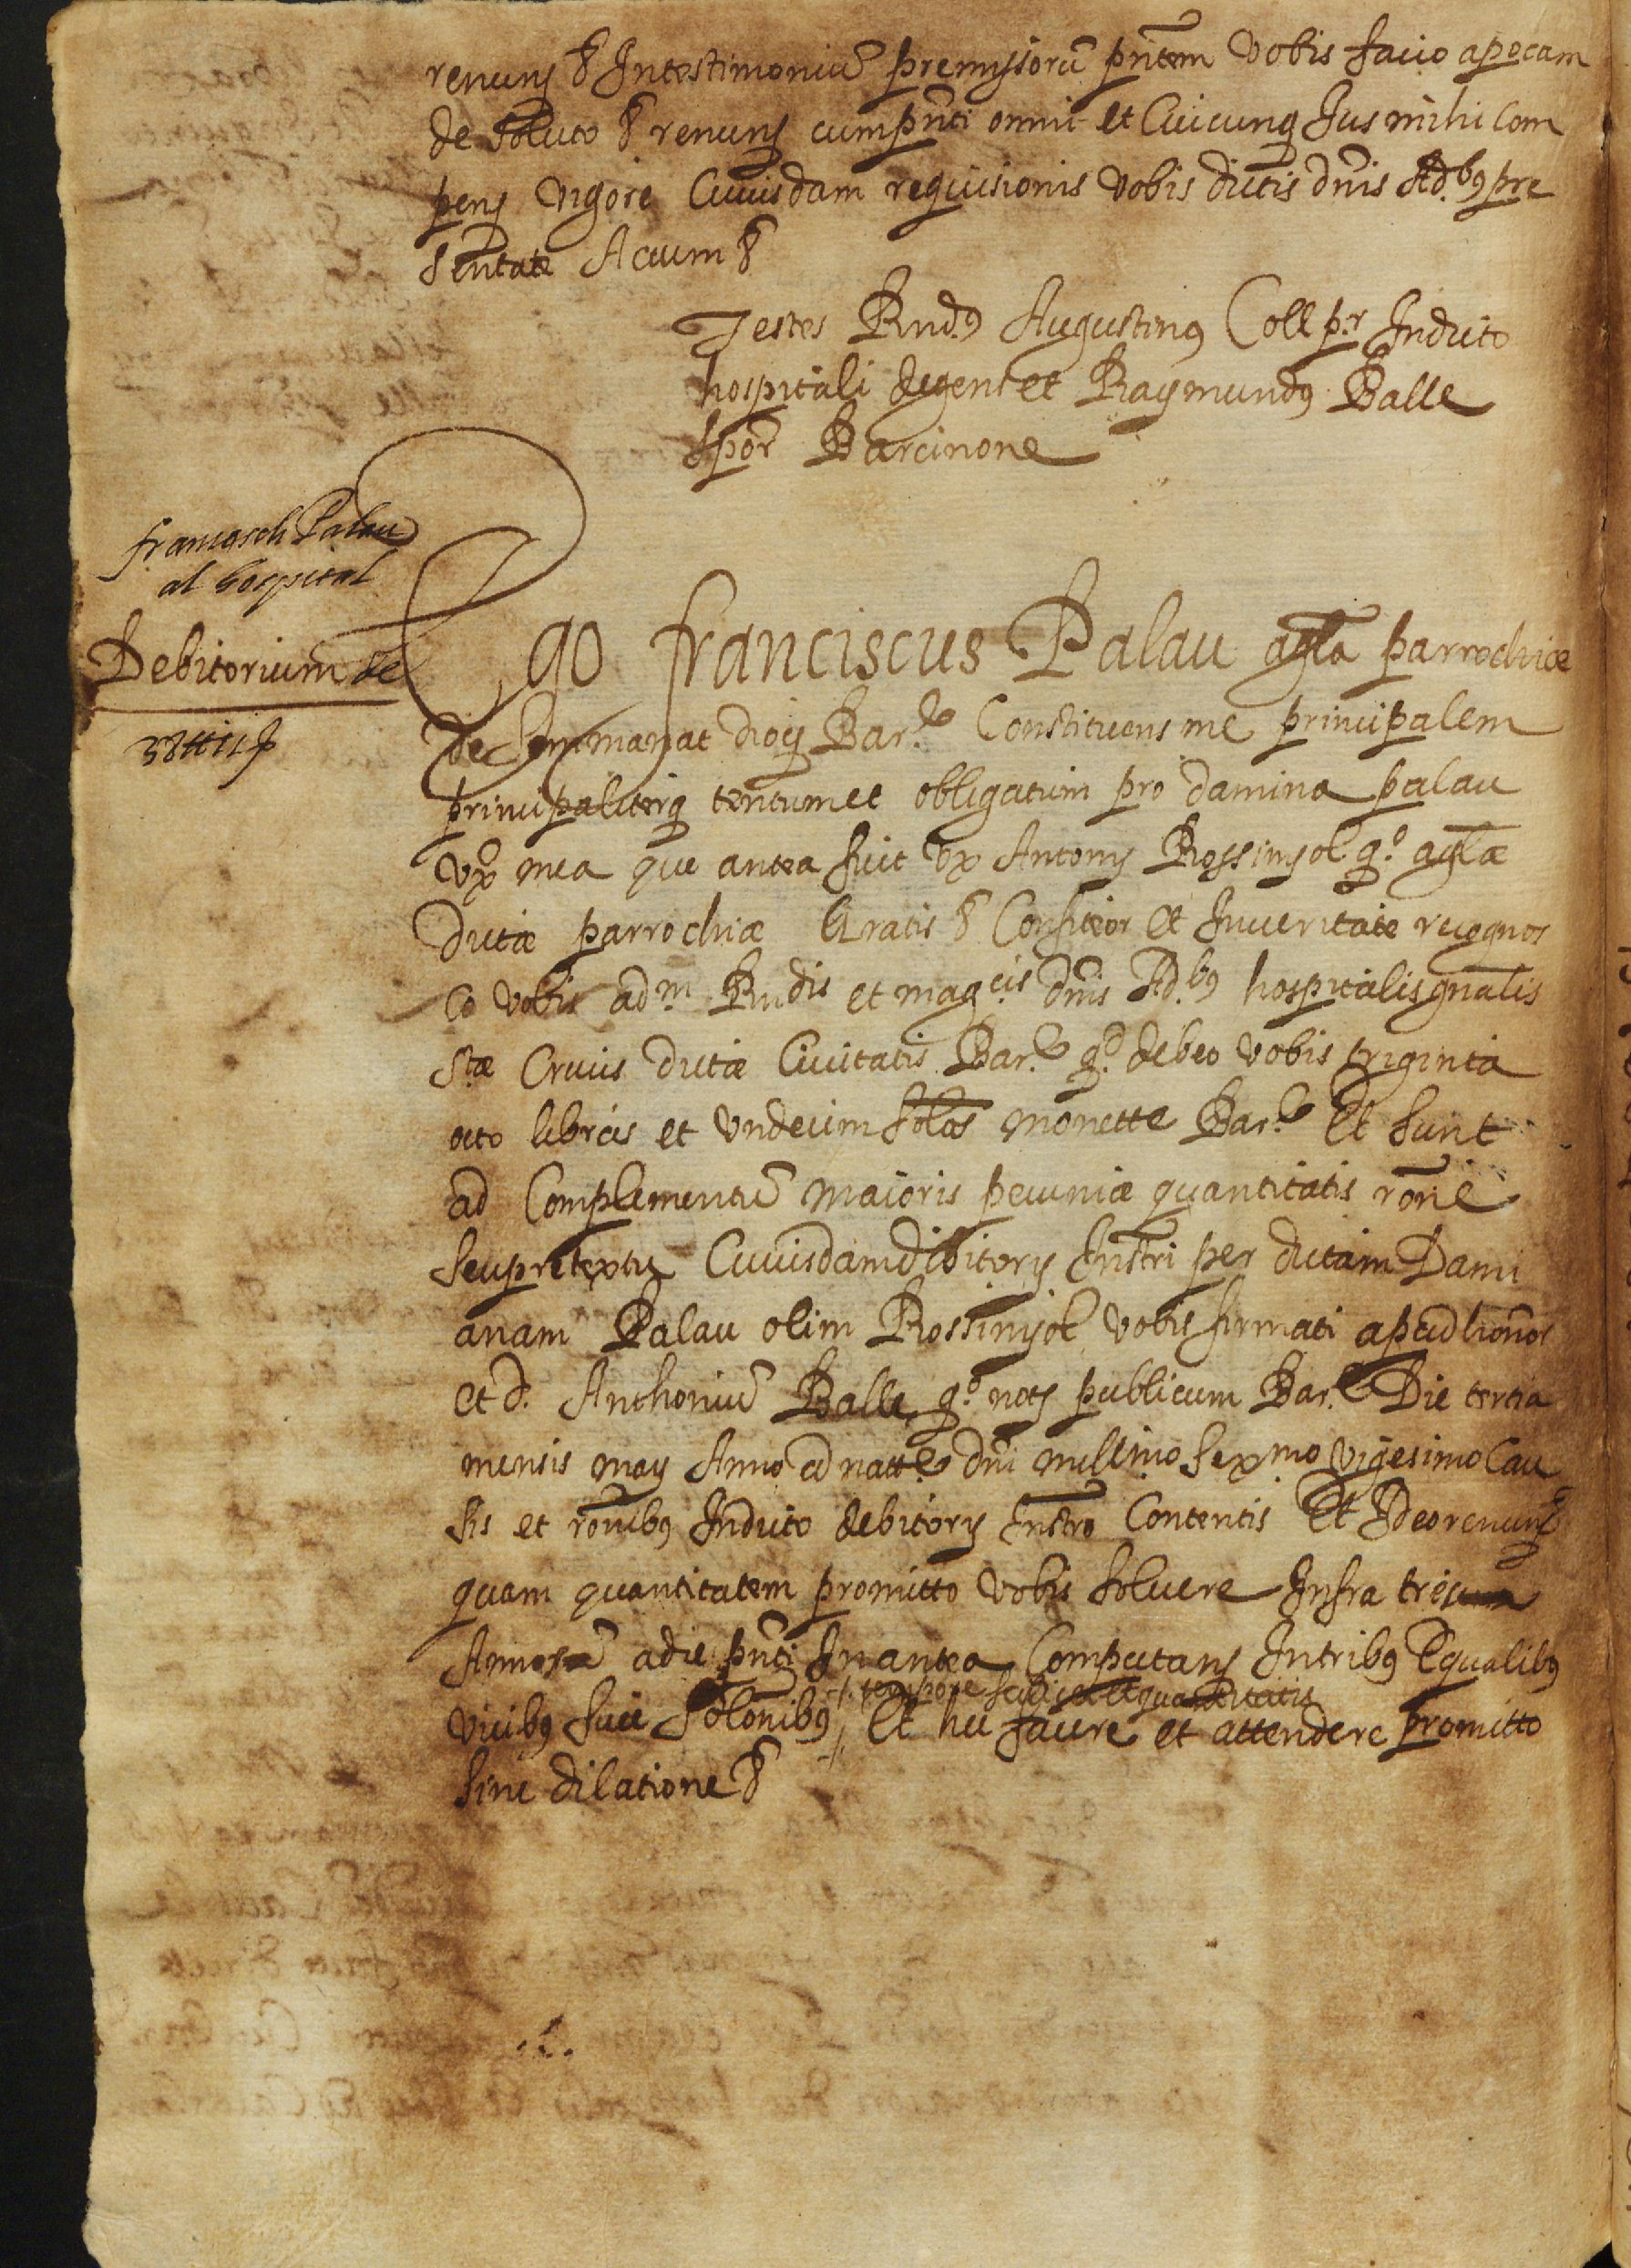 renuns & Intestimoniu premissoru pntem vobis facio apocam
de soluto & renuns cumpnti omni et Cuicunq Jus mihi com
pens vigore Cuiusdam requisionis vobis dictis dnis Ad.bꝯ pre
sentate Actum &
Testes Rndꝯ Augustinꝯ Coll pr Indicto
hospitali degens et Raymundꝯ Balle
Spor Barcinone
francesch Palau
al hospital
Debitorium de
38 ₶ 11 ſ
Ego franciscus Palau agla parrochiæ
de Senmanat diocs Bar.e Constituens me principalem
principaliterq tentumet obligatum pro damina palau
vxo mea que antea fuit vx Antonij Rossinyol qo aglæ
dictæ parrochiæ Gratis & Confiteor et Inueritate recognos
co vobis adm Rndis et magcis dnis Ad.bꝯ hospitalis gnalis
Stæ Crucis dictæ Ciuitatis Bar.e qd debeo vobis triginta
octo libras et vndecim solos monette Bar.e Et sunt
ad Complementu maioris pecuniæ quantitatis rone
Seupretextu Cuiusdamdebitorij Instri per dictam Dami
anam Palau olim Rossinyol vobis firmati apud honor
et d. Anthoniu Balle qo nots publicum Bar.e Die tertia
mensis maij Anno a natte dni millmo sexmo vigesimo Cau
sis et ronibꝯ Indicto debitorij Instro Contentis Et Ideorenuns
quam quantitatem promitto vobis soluere Infra tres
Annos adie pnti Inantea Computans Intribꝯ Equalibꝯ
tempore scilicet et quantitatis
vicibꝯ siue Solonibꝯ Et hec facere et attendere promitto
sine dilatione &